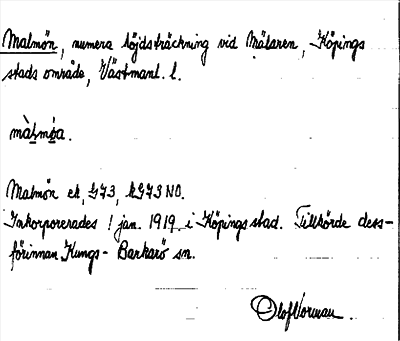 Malmön, numera höjdsträckning vid Mälaren, Köpings
stads område, Västmanl. l.
màlmóa.
Malmön ek, G73, kG73 NO.
Inkorporerades 1 jan. 1919 i Köpings stad. Tillhörde dess-
förinnan Kungs-Barkarö sn.
Olof Norman.